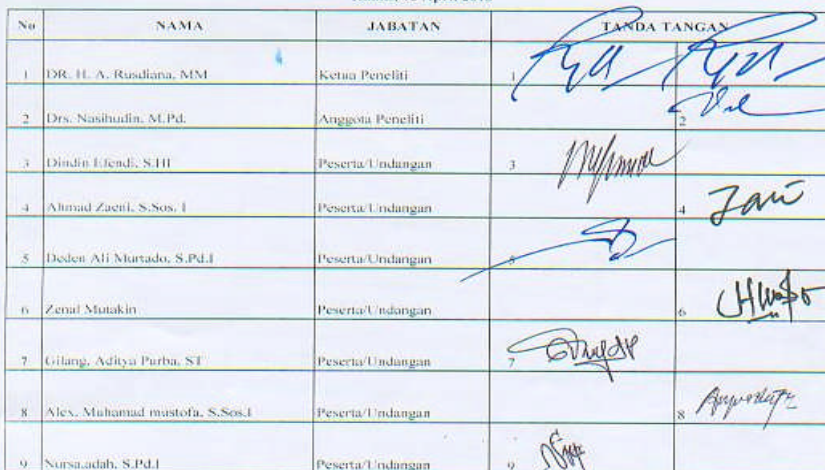 No NAMA JABATAN TANDA TANGAN
1 DR. H. A. Rusdiana, MM Ketua Peneliti 1
2 Drs. Nasihudin, M.Pd. Anggota Peneliti 2
3 Dindin Efendi, S.HI Peserta/Undangan 3
4 Ahmad Zaeni, S.Sos. I Peserta/Undangan 4
5 Deden Ali Murtado, S.Pd.I Peserta/Undangan 5
6 Zenal Mutakin Peserta/Undangan 6
7 Gilang, Aditya Purba, ST Peserta/Undangan 7
8 Alex, Muhamad mustofa, S.Sos.I Peserta/Undangan 8
9 Nursa,adah, S.Pd.I Peserta/Undangan 9